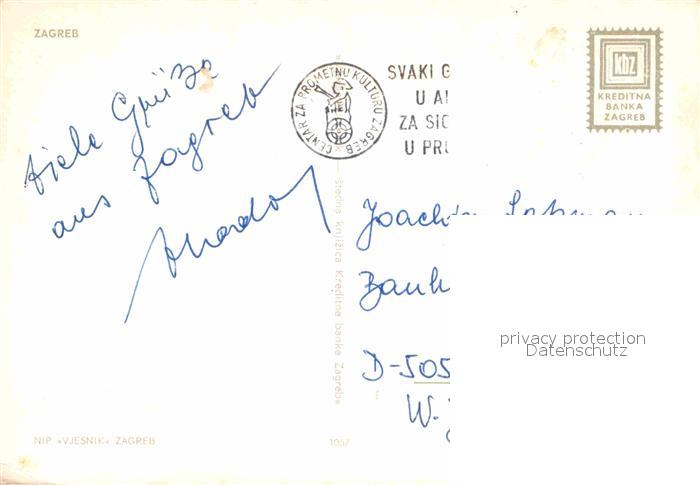 ZAGREB
Viele Grüße
aus Zagreb
CENTAR ZA PROMETNU KULTURU ZAGREB
SVAKI G
U AI
ZA SIG
U PRI
kbz
KREDITNA
BANKA
ZAGREB
štedna knjižica Kreditne banke Zagreb«
Joachim
Bank
D-505
W.
privacy protection
Datenschutz
NIP »VJESNIK« ZAGREB
1057